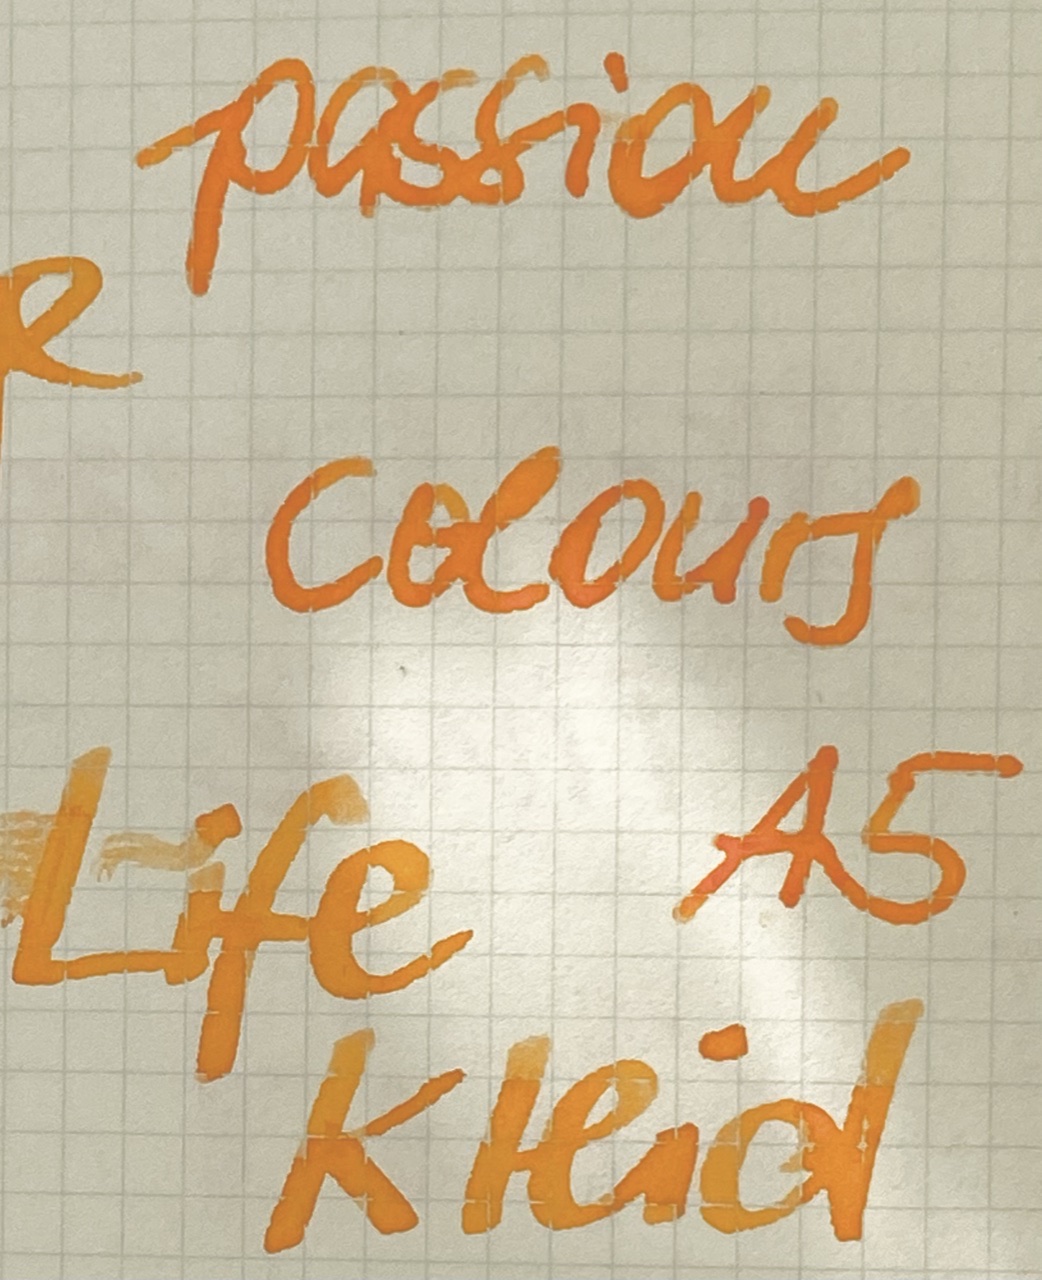 passion
R
colours
Life A5
Kleid